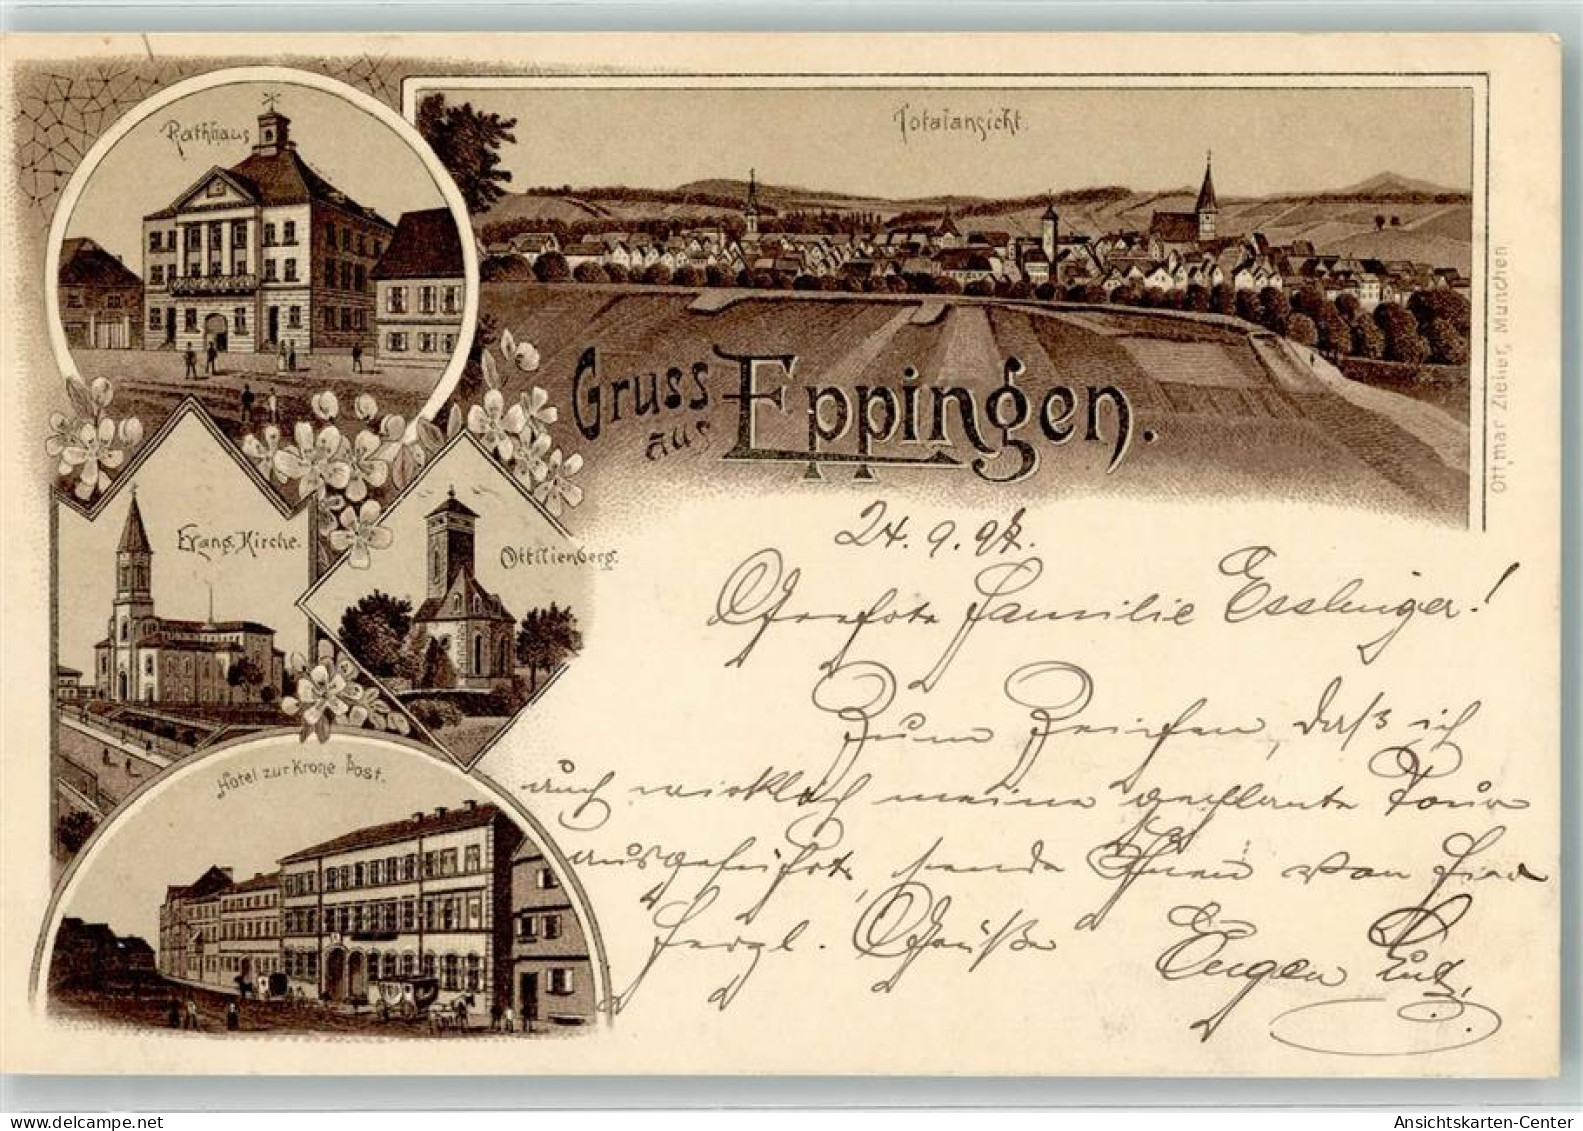 Rathhaus
Totalansicht.
Gruss
aus
Eppingen.
Evang. Kirche.
Ottilienberg.
Hotel zur Krone Post.
Ottmar Zieher, München
24. 9. 97.
Geehrte Familie Esslinger!
Zum Zeichen, daß ich
auch wirklich meine geplante Tour
ausgeführt, sende Ihnen von hier
herzl. Grüße
Eugen Lutz.
Ansichtskarten-Center